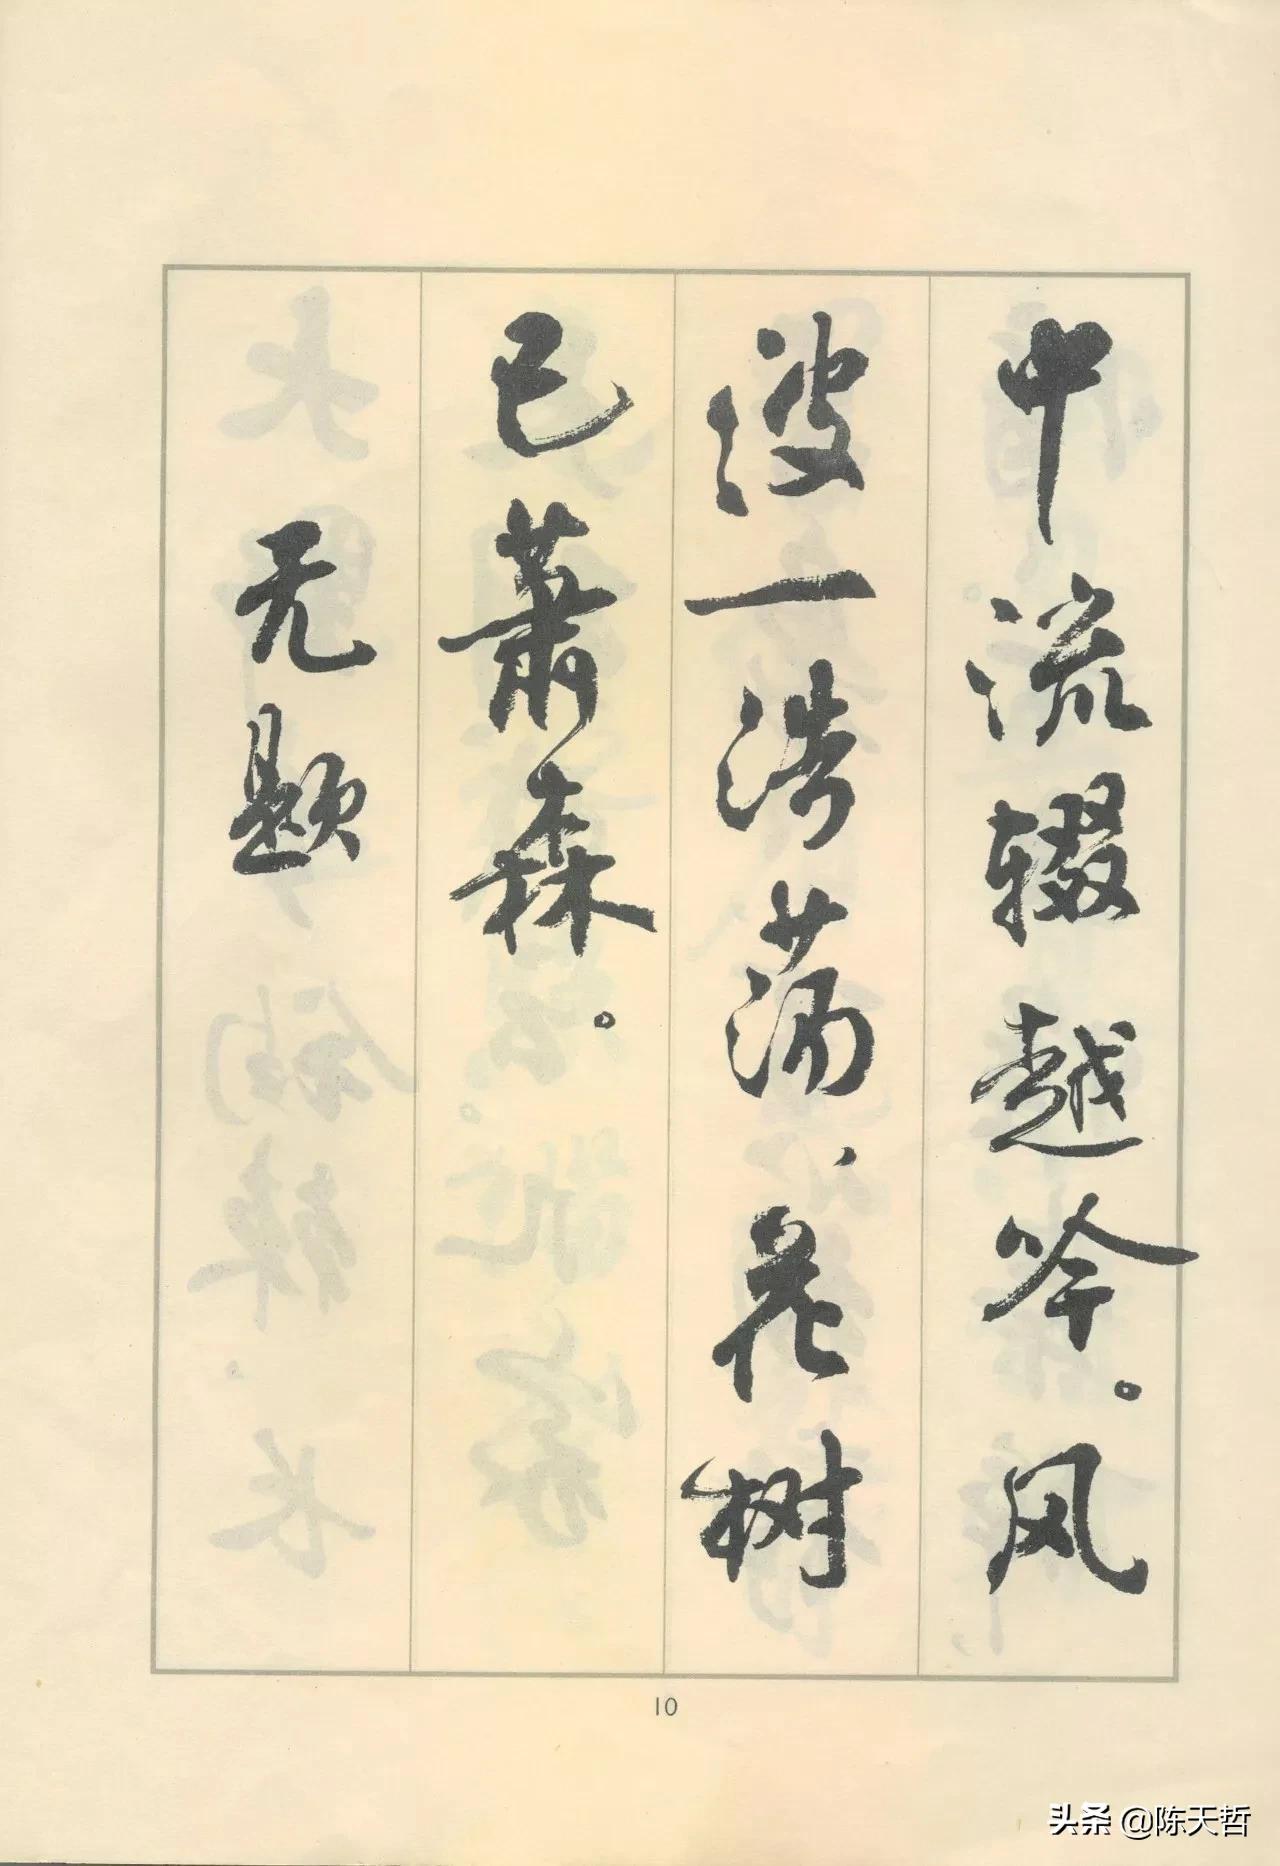 中流辍越吟。风
波一浩荡、花树
已萧森。
无题
10
头条 @陈天哲